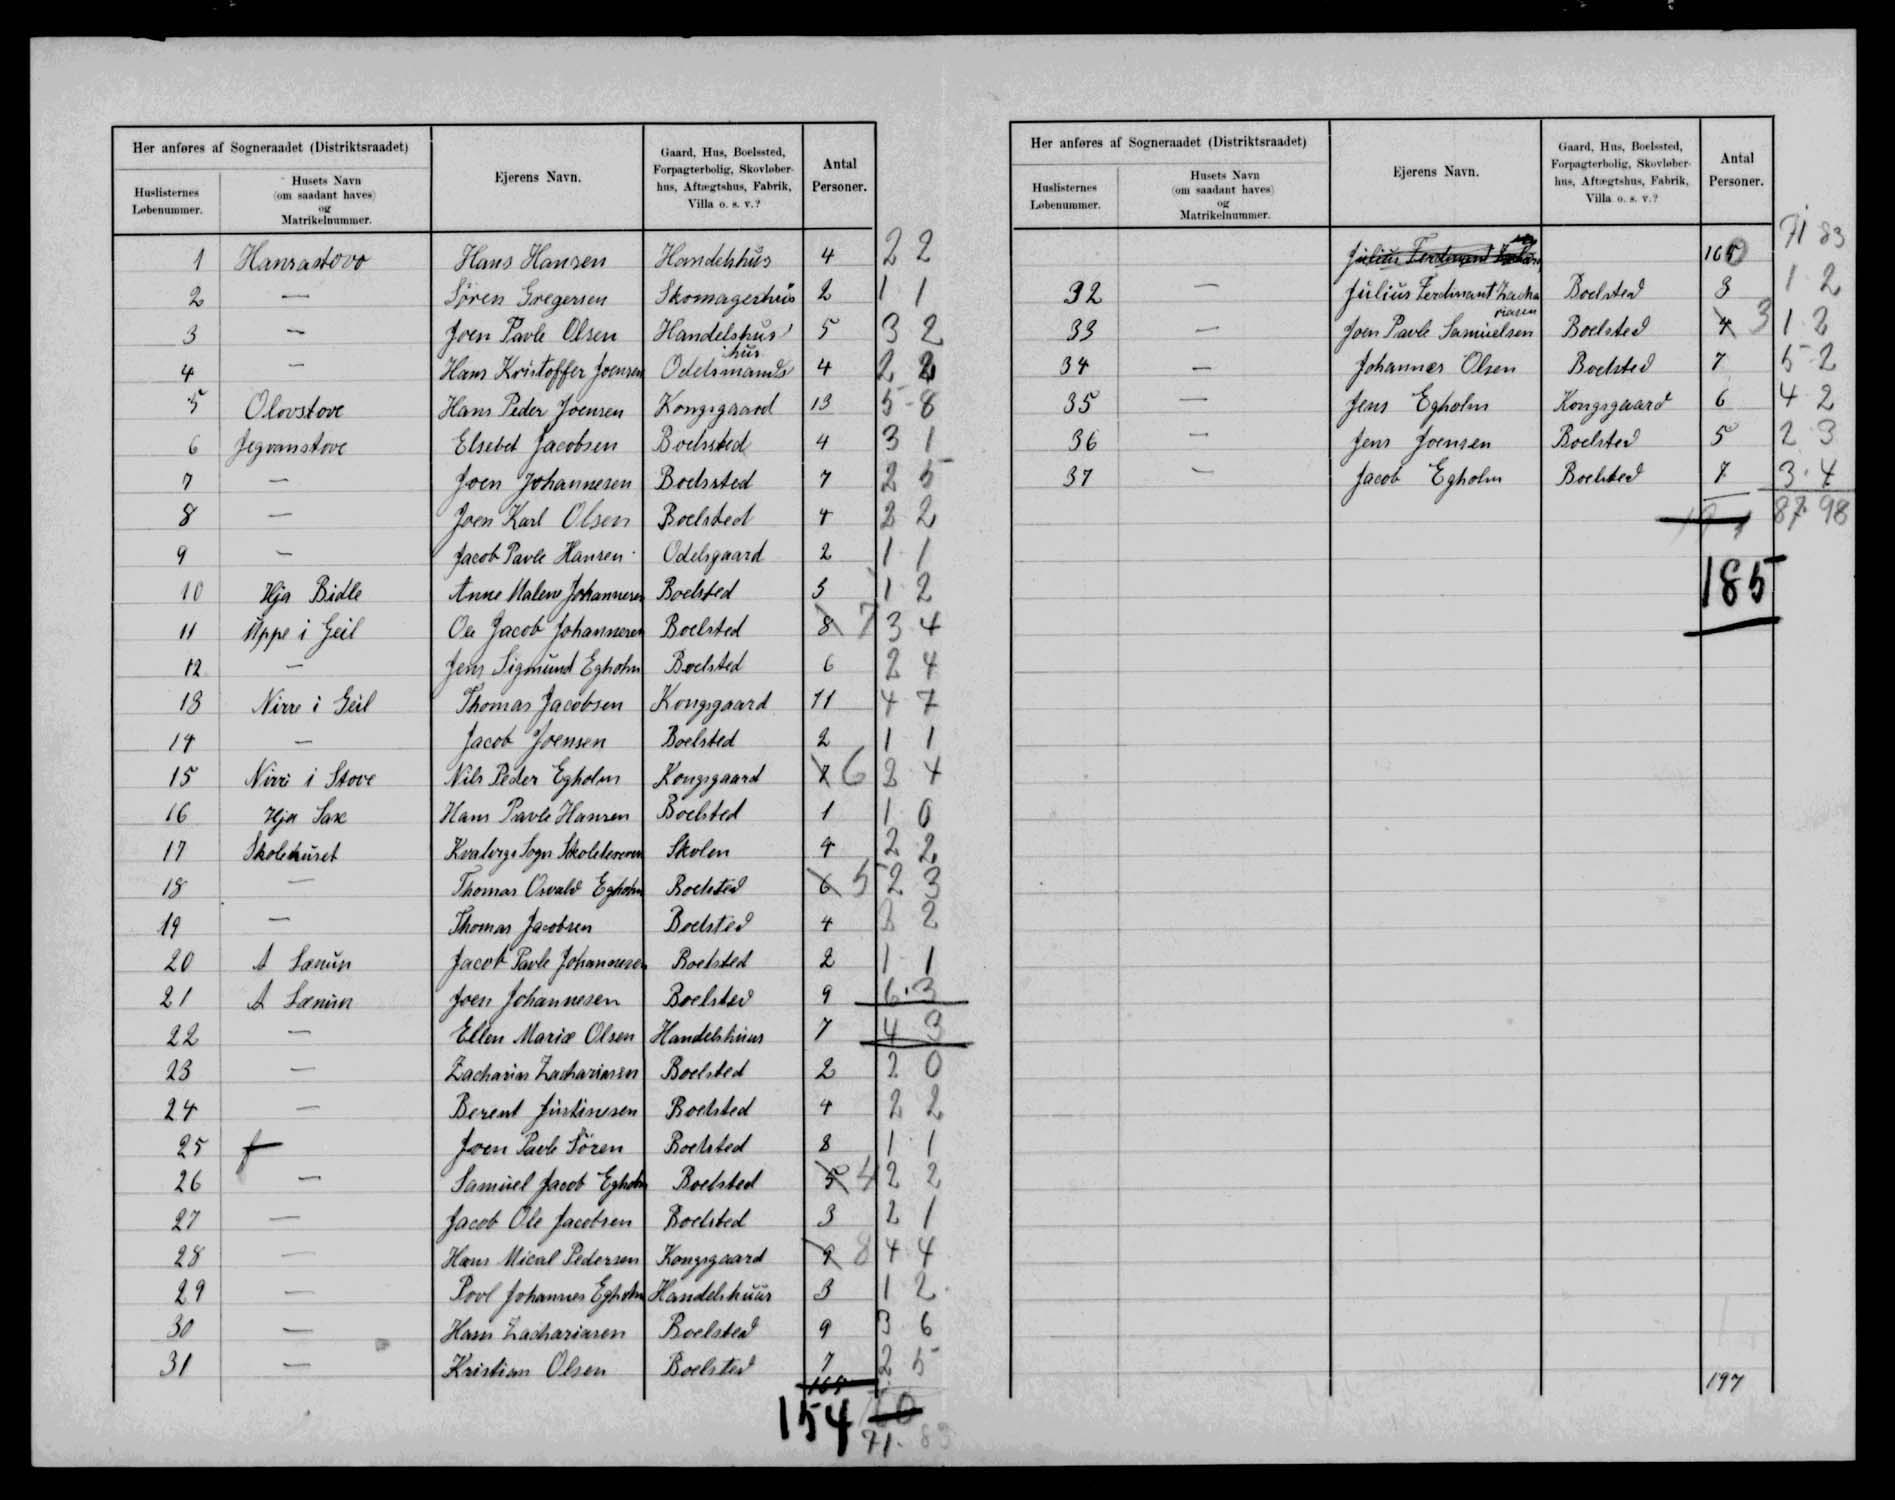 Her anføres af Sogneraadet (Distriktsraadet)
Huslisternes Løbenummer.
Husets Navn (om saadant haves) og Matrikelnummer.
Ejerens Navn.
Gaard, Hus, Boelssted, Forpagterbolig, Skovløberhus, Aftægtshus, Fabrik, Villa o. s. v.?
Antal Personer.
1 Hansastovo Hans Hansen Handelshús 4 2 2
2 — Sören Gregersen Skomagerhús 2 1 1
3 — Joen Pavle Olsen Handelshús 5 3 2
4 — Hans Kristoffer Joensen Odelsmands hús 4 2 2
5 Olovstove Hans Peder Joensen Kongsgaard 13 5 8
6 Jegvanstove Elsebet Jacobsen Boelssted 4 3 1
7 — Joen Johannesen Boelssted 7 2 5
8 — Joen Karl Olsen Boelsted 4 2 2
9 — Jacob Pavle Hansen Odelsgaard 2 1 1
10 Hja Bidle Anne Malene Johannesen Boelsted 3 1 2
11 Uppe i Geil Ole Jacob Johannesen Boelsted 8 7 3 4
12 — Jens Sigmúnd Egholm Boelsted 6 2 4
13 Nirre i Geil Thomas Jacobsen Kongsgaard 11 4 7
14 — Jacob Joensen Boelsted 2 1 1
15 Nirri i Stove Nils Peder Egholm Kongsgaard 7 6 2 4
16 Hja Sax Hans Pavle Hansen Boelsted 1 1 0
17 Skolehúset Kvalvigs Sogn Skolelæreren Skolen 4 2 2
18 — Thomas Osvald Egholm Boelsted 6 5 2 3
19 — Thomas Jacobsen Boelsted 4 2 2
20 A Lænún Jacob Pavle Johannesen Boelsted 2 1 1
21 A Lænún Joen Johannesen Boelsted 9 6 3
22 — Ellen Marie Olsen Handelshúus 7 4 3
23 — Zacharias Zachariassen Boelsted 2 2 0
24 — Berent Jústinesen Boelsted 4 2 2
25 Joen Pavle Sören Boelsted 2 1 1
26 — Samúel Jacob Egholm Boelsted 5 4 2 2
27 — Jacob Ole Jacobsen Boelsted 3 2 1
28 — Hans Mical Pedersen Kongsgaard 9 8 4 4
29 — Povl Johannes Egholm Handelshúus 3 1 2
30 — Hans Zachariasen Boelsted 9 3 6
31 — Kristian Olsen Boelsted 7 2 5
154
71. 83
Her anføres af Sogneraadet (Distriktsraadet)
Huslisternes Løbenummer.
Husets Navn (om saadant haves) og Matrikelnummer.
Ejerens Navn.
Gaard, Hus, Boelssted, Forpagterbolig, Skovløberhus, Aftægtshus, Fabrik, Villa o. s. v.?
Antal Personer.
Júliús Ferdinand 71 83
32 — Júliús Ferdinant Zachariasen Boelsted 3 1 2
33 — Joen Pavle Samúelsen Boelsted 4 3 1 2
34 — Johannes Olsen Boelsted 7 5 2
35 — Jens Egholm Kongsgaard 6 4 2
36 — Jens Joensen Boelsted 5 2 3
37 — Jacob Egholm Boelsted 7 3. 4
87. 98
185
197